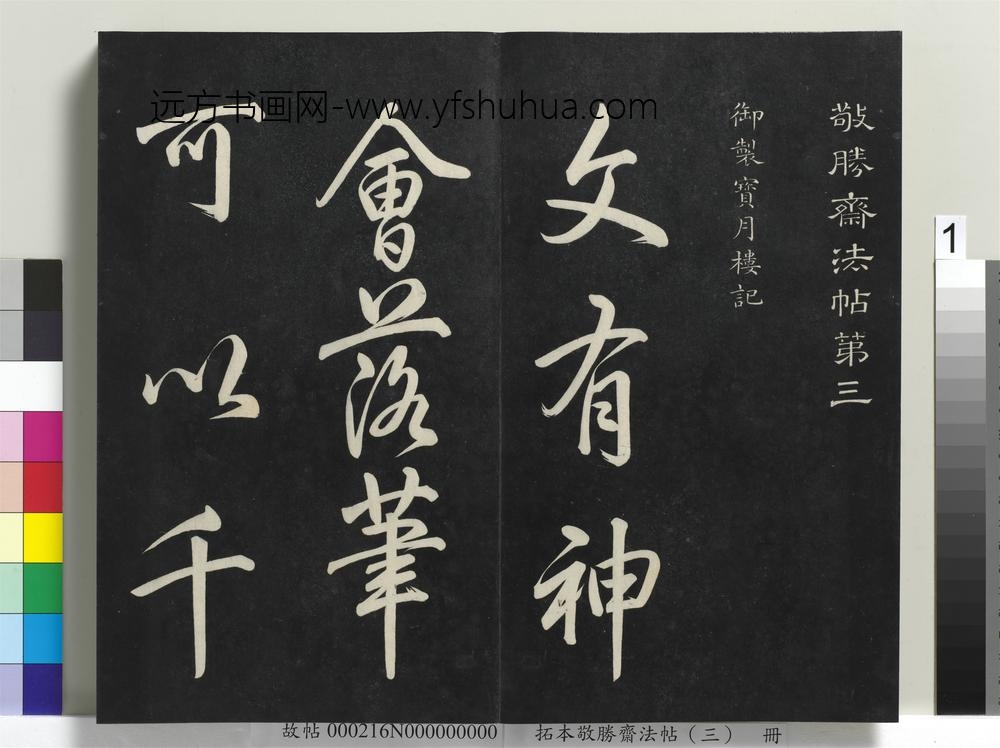 敬勝齋法帖第三
御製寶月樓記
文有神
會落筆
可以千
远方书画网-www.yfshuhua.com
1
故帖 000216N000000000
拓本敬勝齋法帖（三） 冊